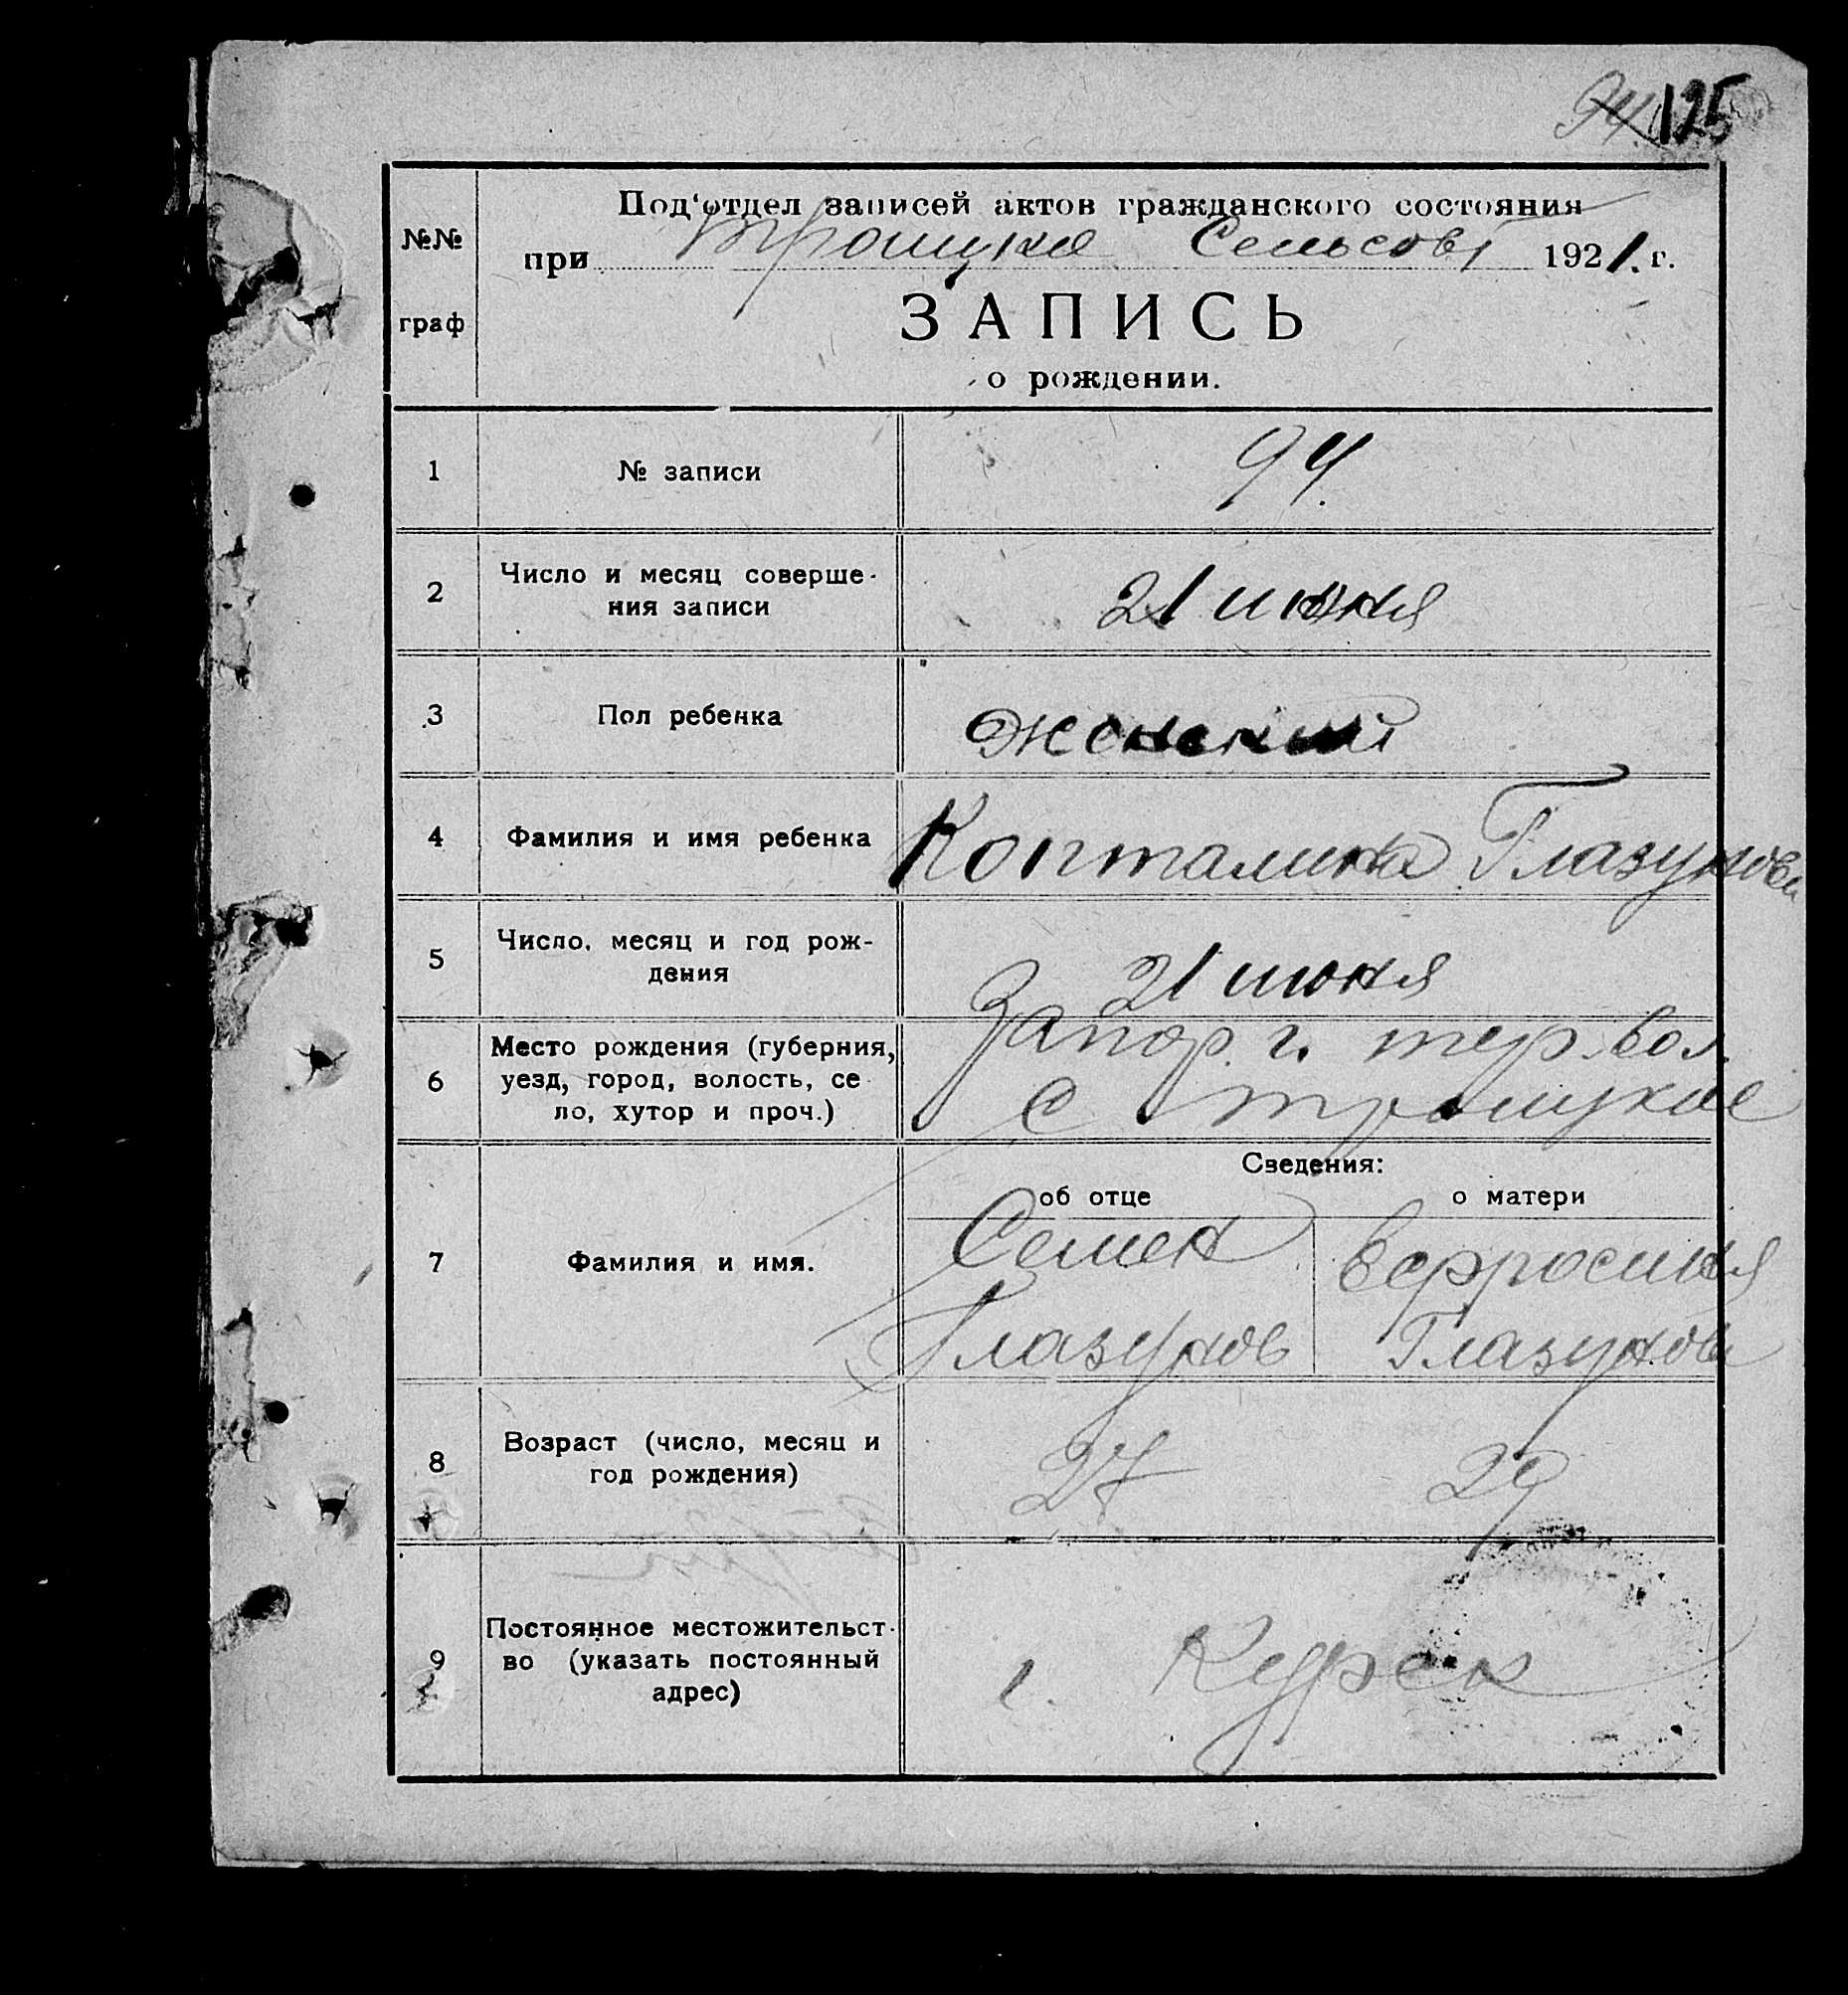 94. 125
Под‘отдел записей актов гражданского состояния
№№
при Троицке Сельсові 1921. г.
граф
ЗАПИСЬ
о рождении.
1 № записи 94.
2 Число и месяц соверше-
ния записи
21 июня
3 Пол ребенка женский
4 Фамилия и имя ребенка Копталина Глазунова
5 Число, месяц и год рож-
дения
21 июня
6 Место рождения (губерния,
уезд, город, волость, се
ло, хутор и проч.)
Запор. г. тер. вол.
с троицкое
Сведения:
об отце о матери
7 Фамилия и имя.
Семен
Глазунов
Ефросиния
Глазунова
8 Возраст (число, месяц и
год рождения)
27 29
9 Постоянное местожительст-
во (указать постоянный
адрес)
г. Курск